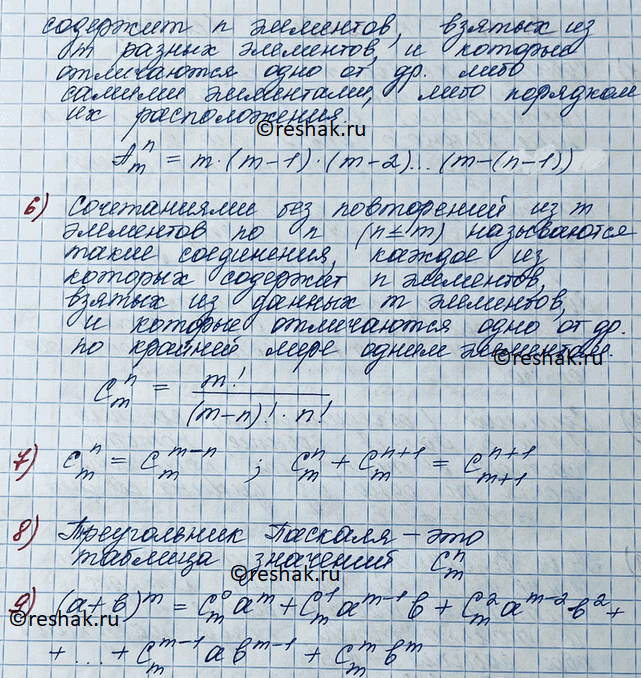 содержит n элементов, взятых из
m разных элементов, и которые
отличаются одно от др. либо
самими элементами, либо порядком
их расположения.
©reshak.ru
A_m^n = m·(m−1)·(m−2)...(m−(n−1))
6) Сочетаниями без повторений из m
©reshak.ru
элементов по n (n≤m) называются
такие соединения, каждое из
которых содержит n элементов,
взятых из данных m элементов,
и которые отличаются одно от др.
по крайней мере одним элементом.
©reshak.ru
C_m^n = m! / ((m−n)!·n!)
7) C_m^n = C_m^{m−n} ; C_m^n + C_m^{n+1} = C_{m+1}^{n+1}
©reshak.ru
8) Треугольник Паскаля – это
таблица значений C_m^n
©reshak.ru
9) (a+b)^m = C_m^0 a^m + C_m^1 a^{m−1} b + C_m^2 a^{m−2} b^2 +
©reshak.ru
+ ... + C_m^{m−1} a b^{m−1} + C_m^m b^m